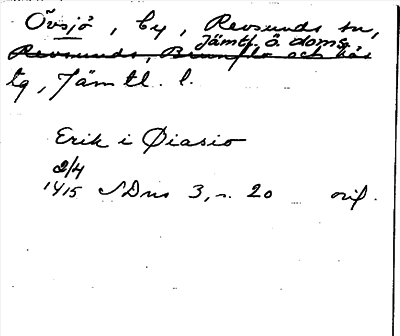 Övsjö, by, Revsunds sn,
Jämtl. ö. doms.
Revsunds, Brunflo och Näs
tg, Jämtl. l.
Erik i Øiasio
2/4
1415 SDns 3, n. 20 orig.